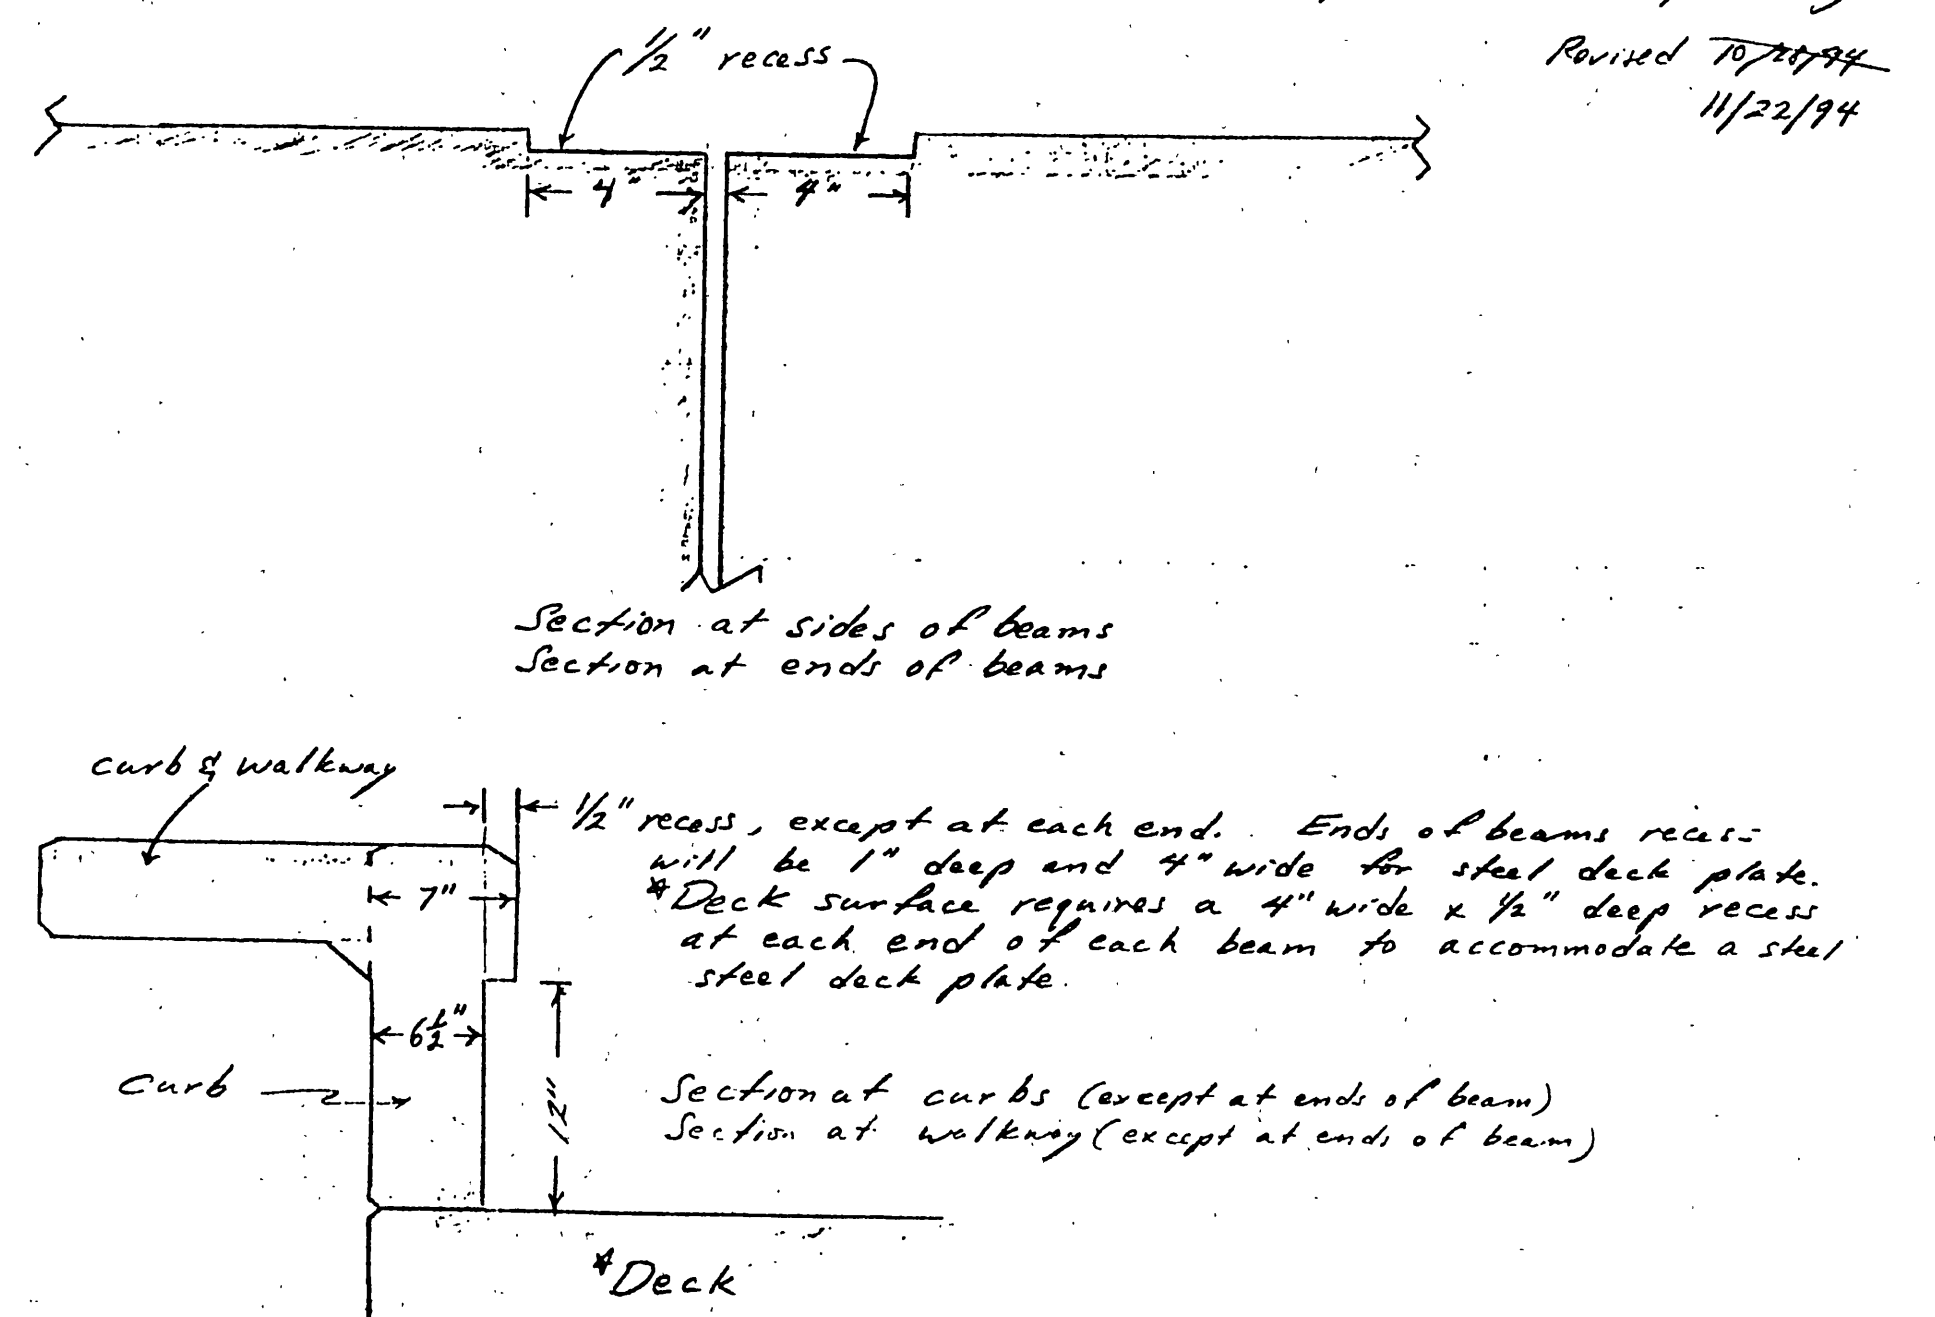 Revised 10/28/94
11/22/94
1/2" recess
4" 4"
Section at sides of beams
Section at ends of beams
curb & walkway
1/2" recess, except at each end. Ends of beams recess
will be 1" deep and 4" wide for steel deck plate.
7"
*Deck surface requires a 4" wide x 1/2" deep recess
at each end of each beam to accommodate a steel
steel deck plate.
6 1/2"
curb
12"
Section at curbs (except at ends of beam)
Section at walkway (except at ends of beam)
*Deck